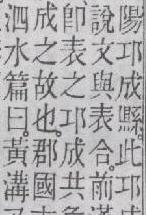 陽邛成縣。此邛成
說文與表合。前漢
卽表之邛成共
成之故也。郡國
泗水篇曰。黃溝